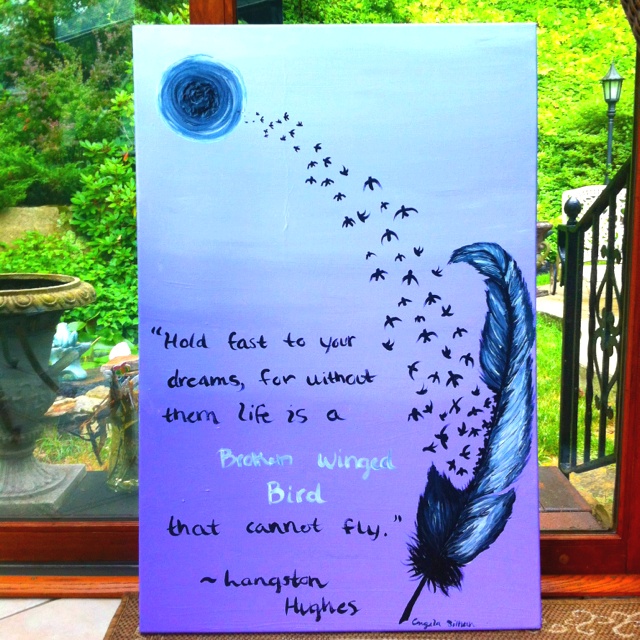 "Hold fast to your
dreams, for without
them life is a
Broken Winged
Bird
that cannot fly."
~Langston
Hughes
Angela